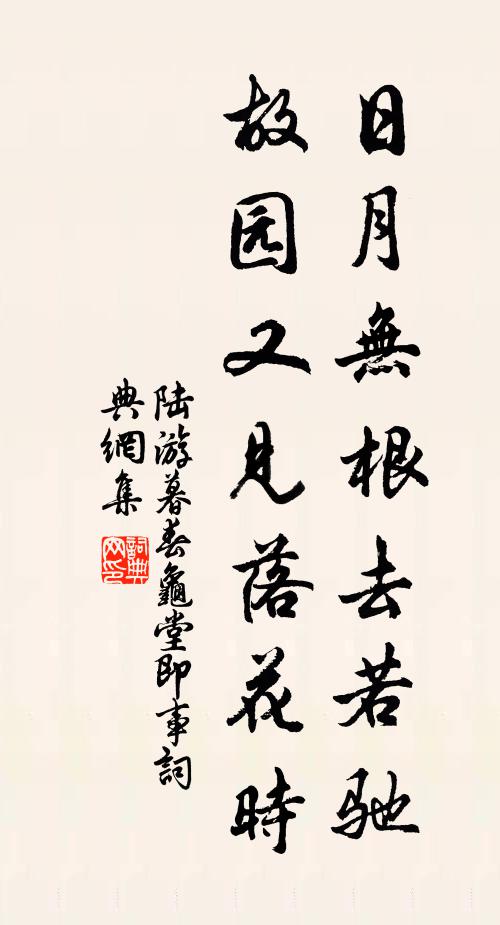 日月無根去若馳
故园又見落花時
陆游暮春龜堂即事詞
典網集
詞典
网印